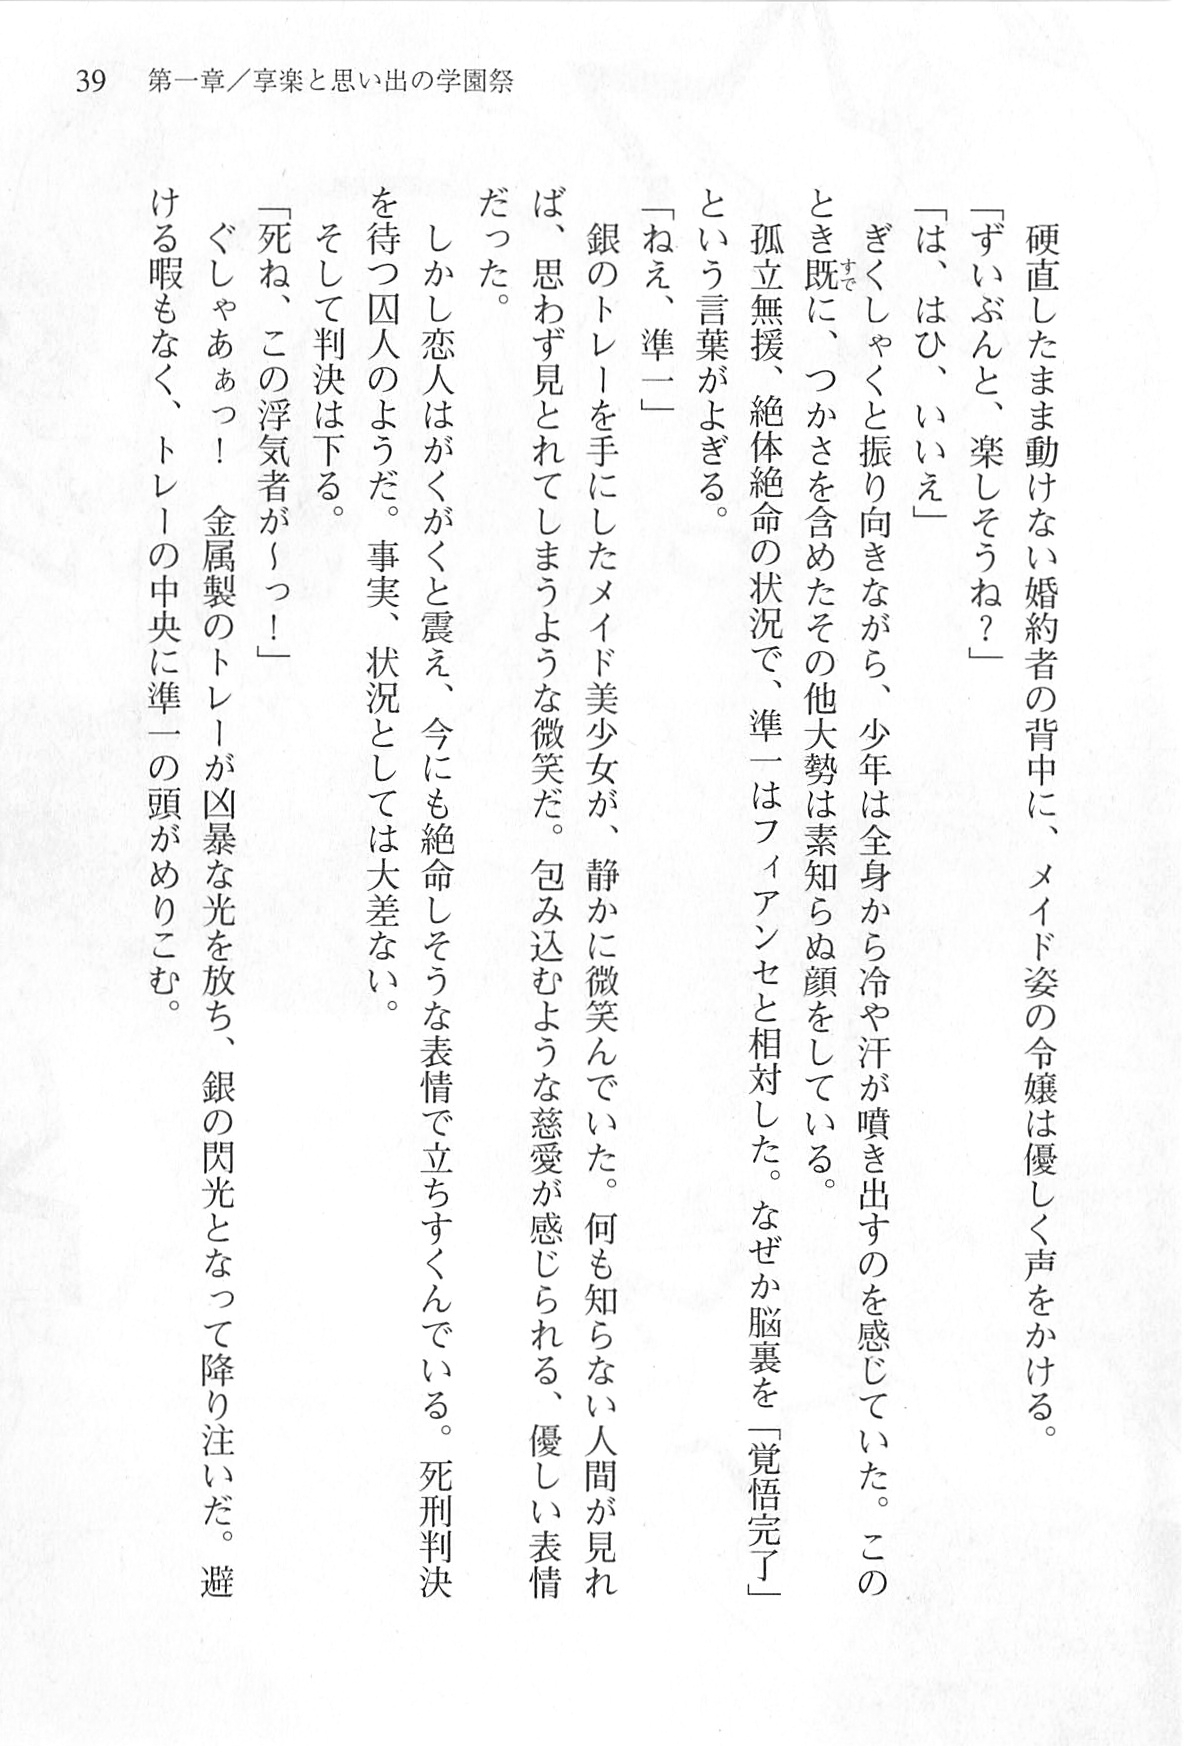 39　第一章／享楽と思い出の学園祭
　硬直したまま動けない婚約者の背中に、メイド姿の令嬢は優しく声をかける。
「ずいぶんと、楽しそうね？」
「は、はひ、いいえ」
　ぎくしゃくと振り向きながら、少年は全身から冷や汗が噴き出すのを感じていた。この
とき既すでに、つかさを含めたその他大勢は素知らぬ顔をしている。
　孤立無援、絶体絶命の状況で、準一はフィアンセと相対した。なぜか脳裏を「覚悟完了」
という言葉がよぎる。
「ねえ、準一」
　銀のトレーを手にしたメイド美少女が、静かに微笑んでいた。何も知らない人間が見れ
ば、思わず見とれてしまうような微笑だ。包み込むような慈愛が感じられる、優しい表情
だった。
　しかし恋人はがくがくと震え、今にも絶命しそうな表情で立ちすくんでいる。死刑判決
を待つ囚人のようだ。事実、状況としては大差ない。
　そして判決は下る。
「死ね、この浮気者が～っ！」
　ぐしゃあぁっ！　金属製のトレーが凶暴な光を放ち、銀の閃光となって降り注いだ。避
ける暇もなく、トレーの中央に準一の頭がめりこむ。